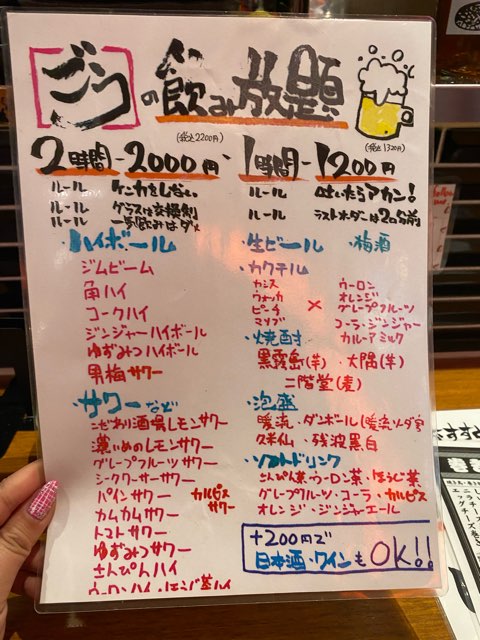 ごうの飲み放題
(税込2200円)
2時間-2000円
ルール ケンカをしない。
ルール グラスは交換制
ルール 一気飲みはダメ
(税込1320円)
1時間-1200円
ルール 吐いたらアカン!
ルール ラストオーダーは20分前
・ハイボール
ジムビーム
角ハイ
コークハイ
ジンジャーハイボール
ゆずみつハイボール
男梅サワー
・サワーなど
こだわり酒場レモンサワー
濃いめのレモンサワー
グレープフルーツサワー
シークワーサーサワー
パインサワー カルピスサワー
カムカムサワー
トマトサワー
ゆずみつサワー
さんぴんハイ
ウーロンハイ・ほうじ茶ハイ
・生ビール ・梅酒
・カクテル
カシス ウーロン
ウォッカ オレンジ
ピーチ × グレープフルーツ
マリブ コーラ・ジンジャー
カルーアミルク
・焼酎
黒霧島(芋)・大隅(芋)
二階堂(麦)
・泡盛
暖流・ダンボール(暖流ソーダ割
久米仙・残波黒白
・ソフトドリンク
さんぴん茶・ウーロン茶・ほうじ茶
グレープフルーツ・コーラ・カルピス
オレンジ・ジンジャーエール
+200円で
日本酒・ワインもOK!!
おすすめ